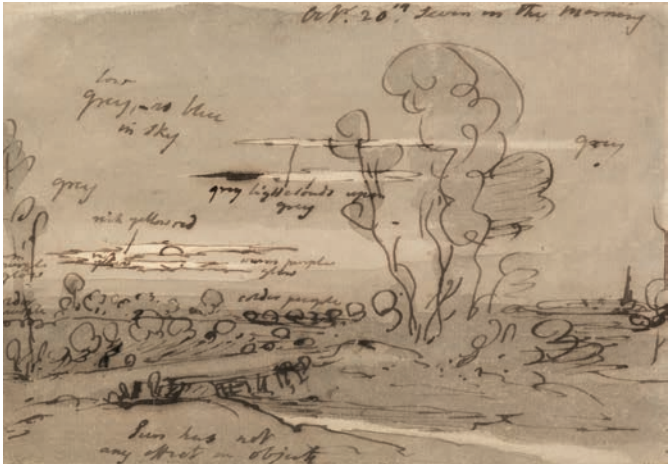 Octr. 20th. Seven in the Morning
grey, no blue
in sky
grey
grey
grey light clouds upon
grey
rich yellow red
warm purple
glow
colder purple
Sun has not
any effect on objects